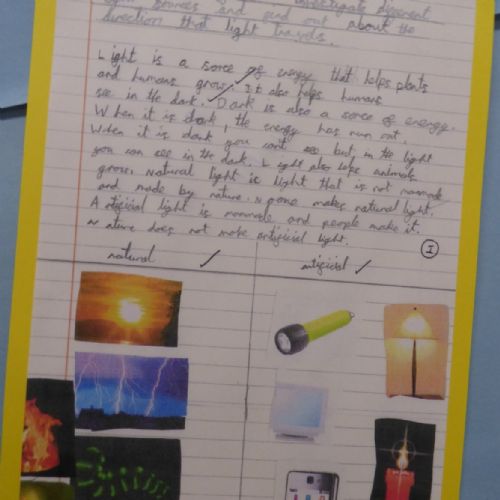 sources and and out about the
direction that light travels.
Light is a sorce of energy that helps plants
and humans grow. It also helps humans
see in the dark. Dark is also a sorce of energy.
When it is dark, the energy has run out.
When it is dark you cant see but in the light
you can see in the dark. Light also helps animals
grow. Natural light is light that is not manmade
and made by nature. None makes natural light.
Artificial light is manmade and people make it.
Nature does not make artificial light.
I
natural
artificial